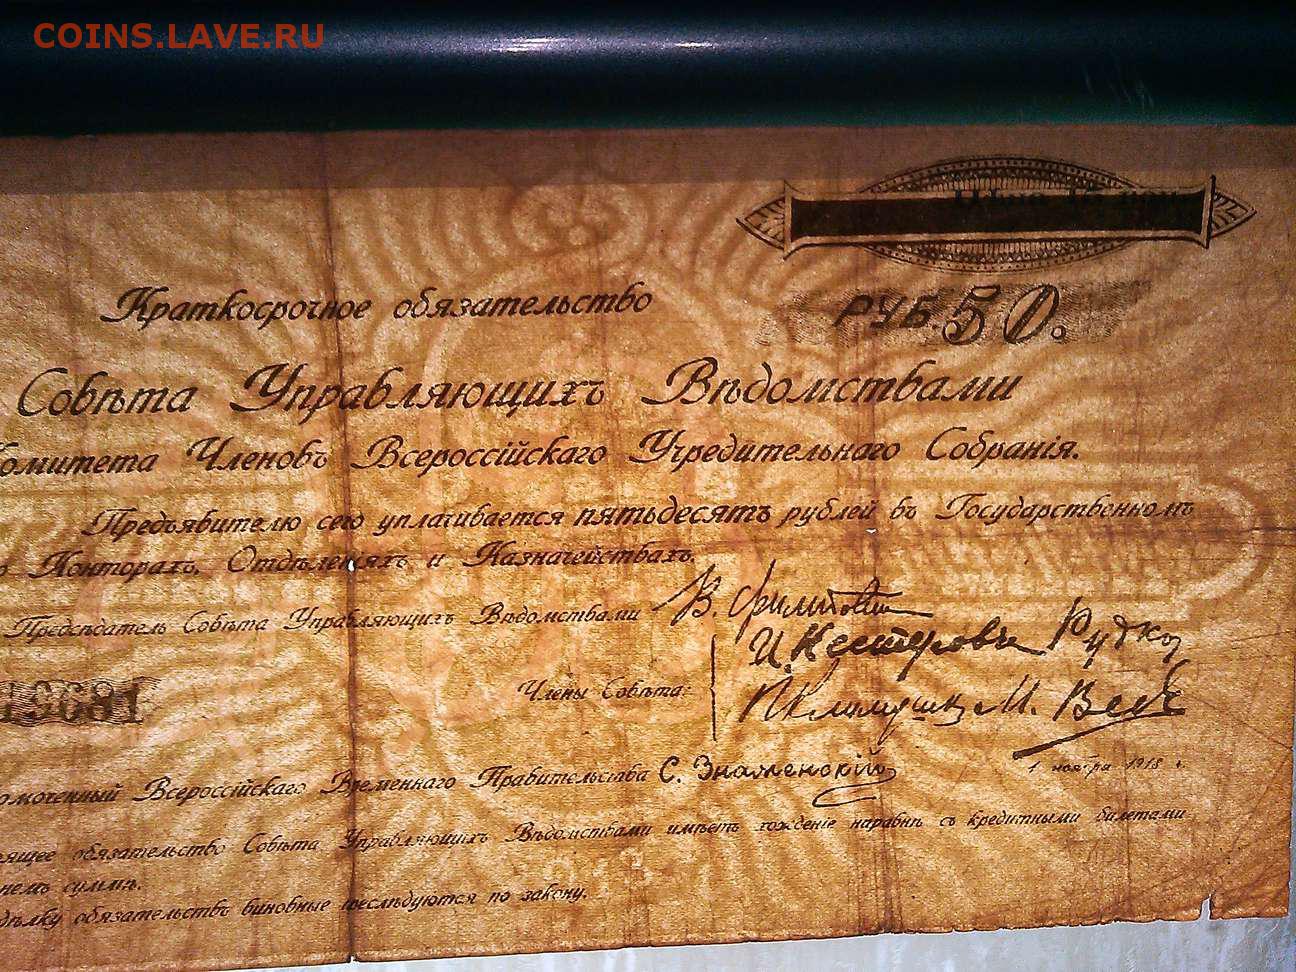 COINS.LAVE.RU
Краткосрочное обязательство
РУБ. 50.
Совѣта Управляющихъ Вѣдомствами
Комитета Членовъ Всероссійскаго Учредительнаго Собранія.
Предъявителю сего уплачивается пятьдесятъ рублей въ Государственномъ
Конторахъ, Отдѣленіяхъ и Казначействахъ.
Предсѣдатель Совѣта Управляющихъ Вѣдомствами В. Филипповскій
И. Нестеровъ Рудко
Члены Совѣта:
П. Климушкин М. Веде
19681
моченный Всероссійскаго Временнаго Правительства С. Знаменскій
1 ноября 1918 г.
ящее обязательство Совѣта Управляющихъ Вѣдомствами имѣетъ хожденіе наравнѣ съ кредитными билетами
немъ суммѣ.
дѣлку обязательствъ виновные преслѣдуются по закону.